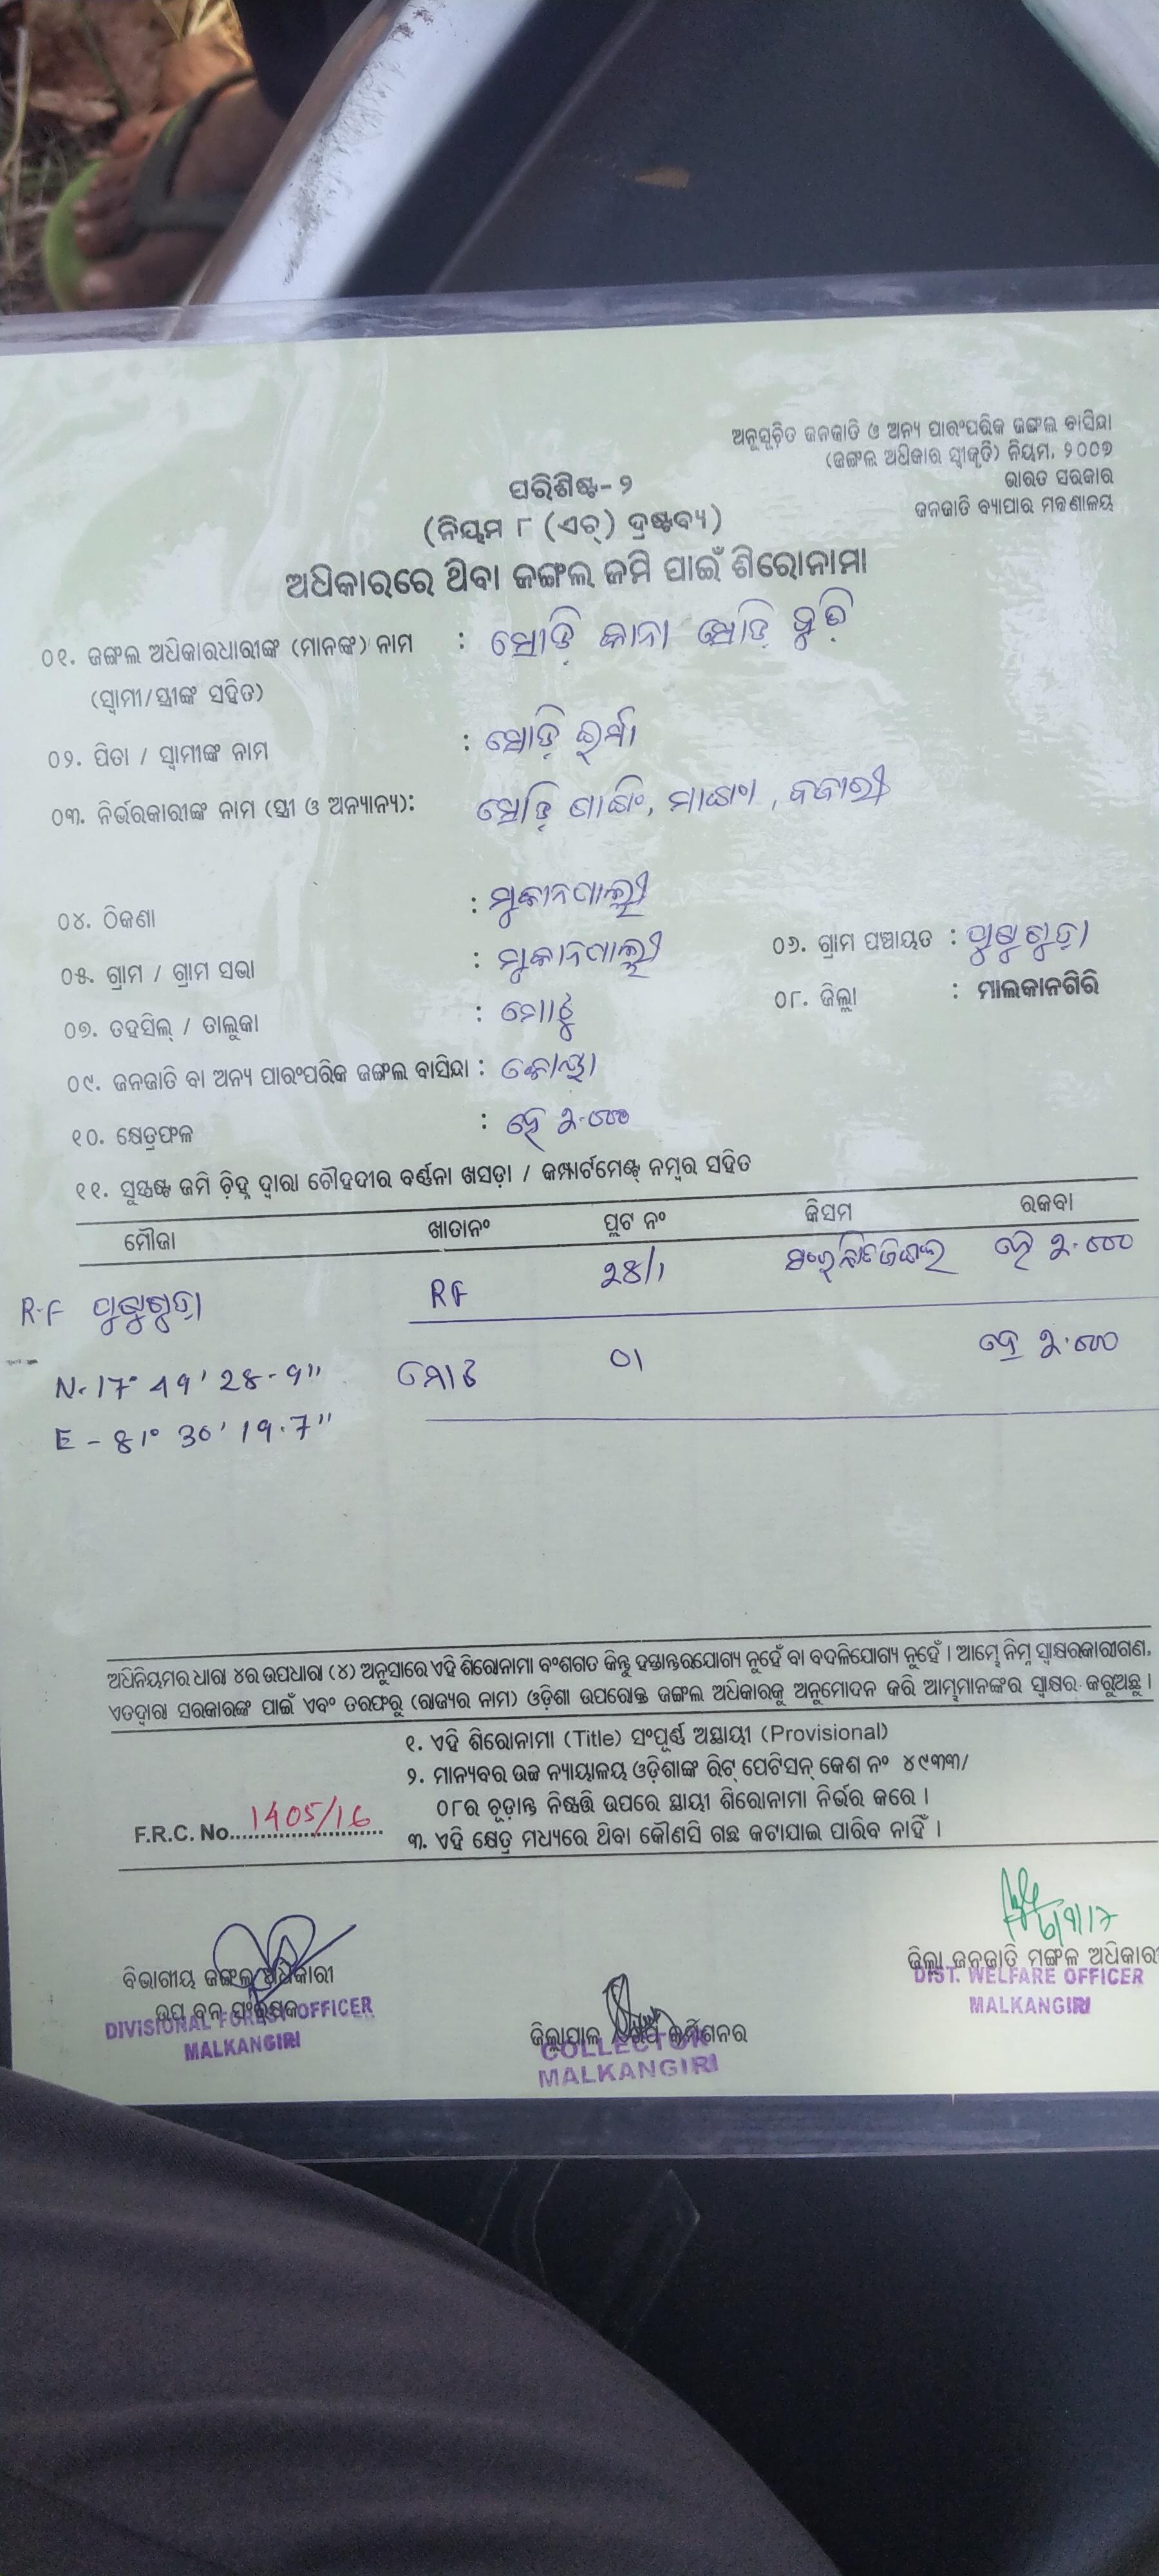 ଅନୁସୂଚିତ ଜନଜାତି ଓ ଅନ୍ୟ ପାରଂପରିକ ଜଙ୍ଗଲ ବାସିନ୍ଦା
(ଜଙ୍ଗଲ ଅଧିକାର ସ୍ୱୀକୃତି) ନିୟମ, ୨୦୦୭
ଭାରତ ସରକାର
ଜନଜାତି ବ୍ୟାପାର ମନ୍ତ୍ରଣାଳୟ
ପରିଶିଷ୍ଟ- ୨
(ନିୟମ ୮ (ଏଚ୍) ଦ୍ରଷ୍ଟବ୍ୟ)
ଅଧିକାରରେ ଥିବା ଜଙ୍ଗଲ ଜମି ପାଇଁ ଶିରୋନାମା
୦୧. ଜଙ୍ଗଲ ଅଧିକାରଧାରୀଙ୍କ (ମାନଙ୍କ) ନାମ :
(ସ୍ୱାମୀ/ସ୍ତ୍ରୀଙ୍କ ସହିତ)
୦୨. ପିତା / ସ୍ୱାମୀଙ୍କ ନାମ :
୦୩. ନିର୍ଭରକାରୀଙ୍କ ନାମ (ସ୍ତ୍ରୀ ଓ ଅନ୍ୟାନ୍ୟ):
୦୪. ଠିକଣା :
୦୫. ଗ୍ରାମ / ଗ୍ରାମ ସଭା : ୦୬. ଗ୍ରାମ ପଞ୍ଚାୟତ :
୦୭. ତହସିଲ୍ / ତାଲୁକା : ମୋଟୁ ୦୮. ଜିଲ୍ଲା : ମାଲକାନଗିରି
୦୯. ଜନଜାତି ବା ଅନ୍ୟ ପାରଂପରିକ ଜଙ୍ଗଲ ବାସିନ୍ଦା : କୋୟା
୧୦. କ୍ଷେତ୍ରଫଳ : ହେ ୨.୦୦୦
୧୧. ସୁସ୍ପଷ୍ଟ ଜମି ଚିହ୍ନ ଦ୍ୱାରା ଚୌହଦୀର ବର୍ଣ୍ଣନା ଖସଡ଼ା / କମ୍ପାର୍ଟମେଣ୍ଟ୍ ନମ୍ବର ସହିତ
ମୌଜା ଖାତାନଂ ପ୍ଲଟ ନଂ କିସମ ରକବା
R.F RF ହେ ୨.୦୦୦
ମୋଟ ୦୧ ହେ ୨.୦୦୦
N-17° 49' 28.9"
E - 81° 30' 19.7"
ଅଧିନିୟମର ଧାରା ୪ର ଉପଧାରା (୪) ଅନୁସାରେ ଏହି ଶିରୋନାମା ବଂଶଗତ କିନ୍ତୁ ହସ୍ତାନ୍ତରଯୋଗ୍ୟ ନୁହେଁ ବା ବଦଳିଯୋଗ୍ୟ ନୁହେଁ । ଆମ୍ଭେ ନିମ୍ନ ସ୍ୱାକ୍ଷରକାରୀଗଣ,
ଏତଦ୍ୱାରା ସରକାରଙ୍କ ପାଇଁ ଏବଂ ତରଫରୁ (ରାଜ୍ୟର ନାମ) ଓଡ଼ିଶା ଉପରୋକ୍ତ ଜଙ୍ଗଲ ଅଧିକାରକୁ ଅନୁମୋଦନ କରି ଆମ୍ଭମାନଙ୍କର ସ୍ୱାକ୍ଷର କରୁଅଛୁ ।
୧. ଏହି ଶିରୋନାମା (Title) ସଂପୂର୍ଣ୍ଣ ଅସ୍ଥାୟୀ (Provisional)
୨. ମାନ୍ୟବର ଉଚ୍ଚ ନ୍ୟାୟାଳୟ ଓଡ଼ିଶାଙ୍କ ରିଟ୍ ପେଟିସନ୍ କେଶ ନଂ ୪୯୩୩/
୦୮ର ଚୂଡ଼ାନ୍ତ ନିଷ୍ପତ୍ତି ଉପରେ ସ୍ଥାୟୀ ଶିରୋନାମା ନିର୍ଭର କରେ ।
୩. ଏହି କ୍ଷେତ୍ର ମଧ୍ୟରେ ଥିବା କୌଣସି ଗଛ କଟାଯାଇ ପାରିବ ନାହିଁ ।
F.R.C. No. 1405/16
6/9/17
ଜିଲ୍ଲା ଜନଜାତି ମଙ୍ଗଳ ଅଧିକାରୀ
DIST. WELFARE OFFICER
MALKANGIRI
ବିଭାଗୀୟ ଜଙ୍ଗଲ ଅଧିକାରୀ
ଉପ ବନ ସଂରକ୍ଷକ
DIVISIONAL FOREST OFFICER
MALKANGIRI
ଜିଲ୍ଲାପାଳ
COLLECTOR
MALKANGIRI